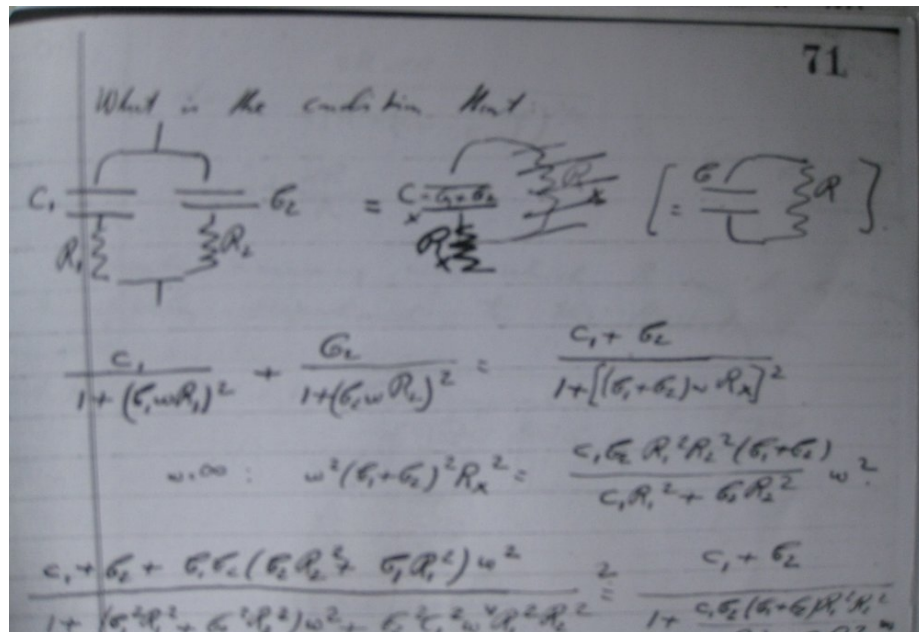 71
What is the condition that
C₁ C₂ = C = C₁ + C₂ R [ = C R ]
R₁ R₂ Rₓ x
C₁ / (1 + (C₁ωR₁)²) + C₂ / (1 + (C₂ωR₂)²) = (C₁ + C₂) / (1 + [(C₁ + C₂)ωRₓ]²)
ω = ∞ : ω²(C₁ + C₂)²Rₓ² = C₁C₂R₁²R₂²(C₁ + C₂) / (C₁R₁² + C₂R₂²) ω²
(C₁ + C₂ + C₁C₂(C₂R₂² + C₁R₁²)ω²) / (1 + (C₁²R₁² + C₂²R₂²)ω² + C₁²C₂²ω⁴R₁²R₂²) ≟ (C₁ + C₂) / (1 + C₁C₂(C₁ + C₂)R₁²R₂²